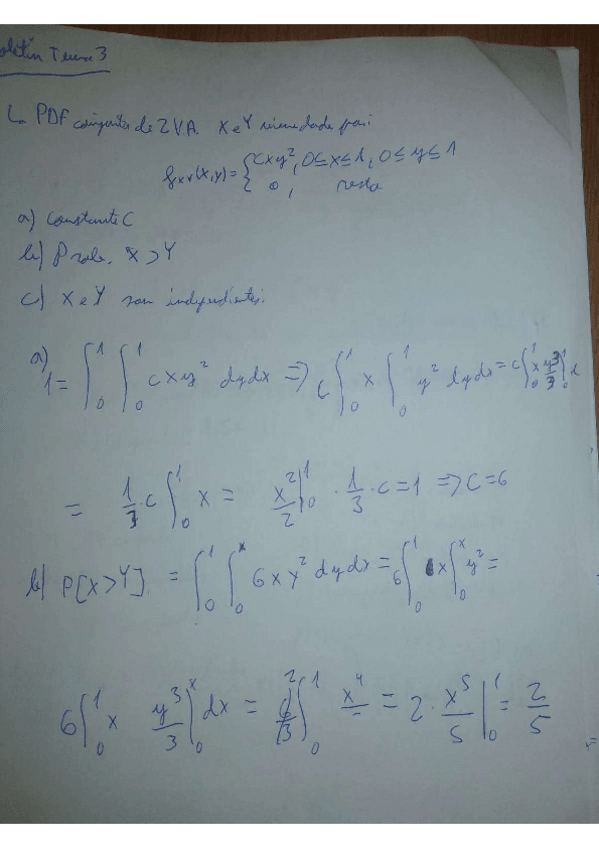 oletín Tema 3
La PDF conjunta de 2 V.A. X e Y viene dada por:
f_{XY}(x,y) = { cxy², 0≤x≤1, 0≤y≤1
0, resto
a) Constante C
b) Prob. X > Y
c) X e Y son independientes.
a)
1 = ∫₀¹ ∫₀¹ cxy² dydx ⇒ c ∫₀¹ x ∫₀¹ y² dydx = c ∫₀¹ x y³/3 |₀¹
= 1/3 · c ∫₀¹ x = x²/2 |₀¹ · 1/3 · c = 1 ⇒ C = 6
b) P[X>Y] = ∫₀¹ ∫₀ˣ 6xy² dydx = 6 ∫₀¹ x ∫₀ˣ y² =
6 ∫₀¹ x y³/3 |₀ˣ dx = 6/3 2 ∫₀¹ x⁴ = 2 · x⁵/5 |₀¹ = 2/5